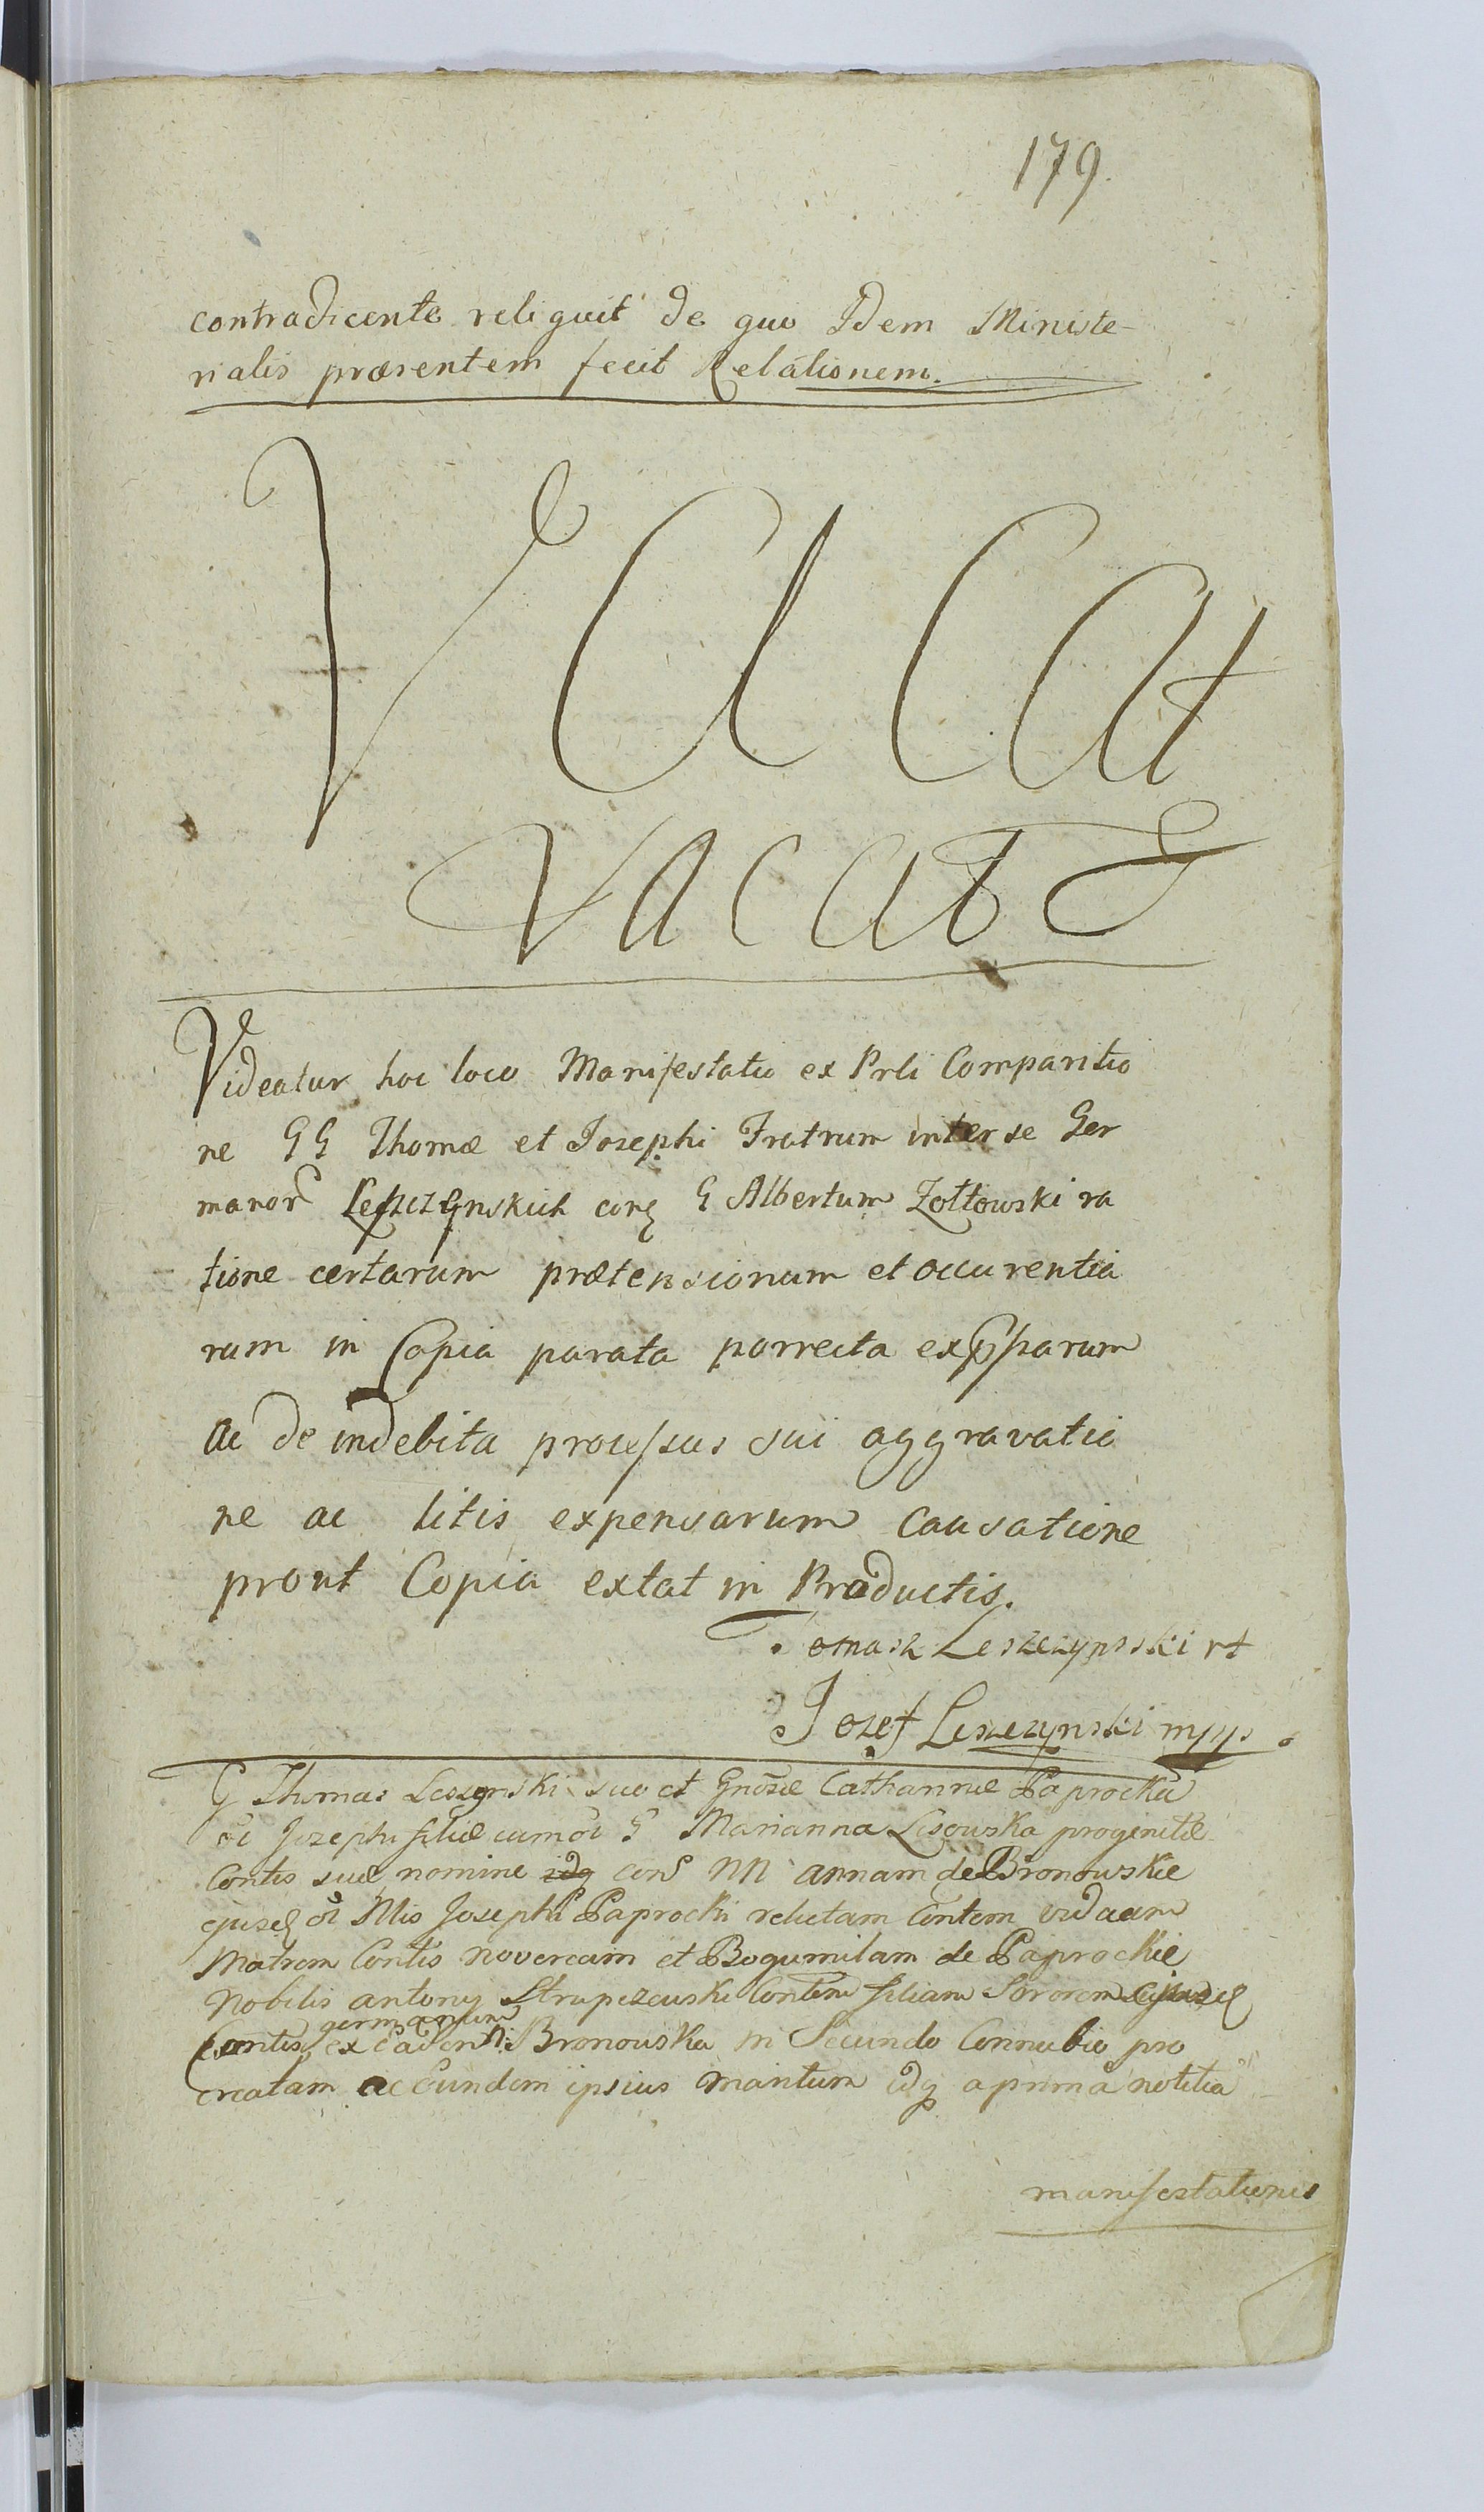 179.
contradicente reliquit de quo Idem Ministe-
rialis præsentem fecit Relationem.
VaCat
VacaT
Videatur hoc loco Manifestatio ex Prli Comparitio
ne GG Thomæ et Josephi Fratrum inter se Ger
manor Leszczynskich G Albertum Zołtowski ra
tione certarum prætensionum et occurentia
rum in Copia parata porrecta
ac de indebita processus sui aggravatio
ne ac litis expensarum causatione
prout Copia extat in Productis.
Tomasz Leszczynski
Jozef Leszczynski mpp.
G Thomas suo et Gnosæ Catharinæ Paprocka
oi Josephi filiæ cum oi G Marianna Lisowska progenitæ
Contis suæ nomine NN annam de Bronowskie
oi Josephi Paprocki relictam Contem viduam
Matrem Contis novercam et Bogumilam de Paprockie
Nobilis antony Contem filiam Sororem
Contis germanam ex Bronowska in Secundo Connubio pro
creatam ac Eundem ipsius Maritum idq a prima notitia
manifestationis